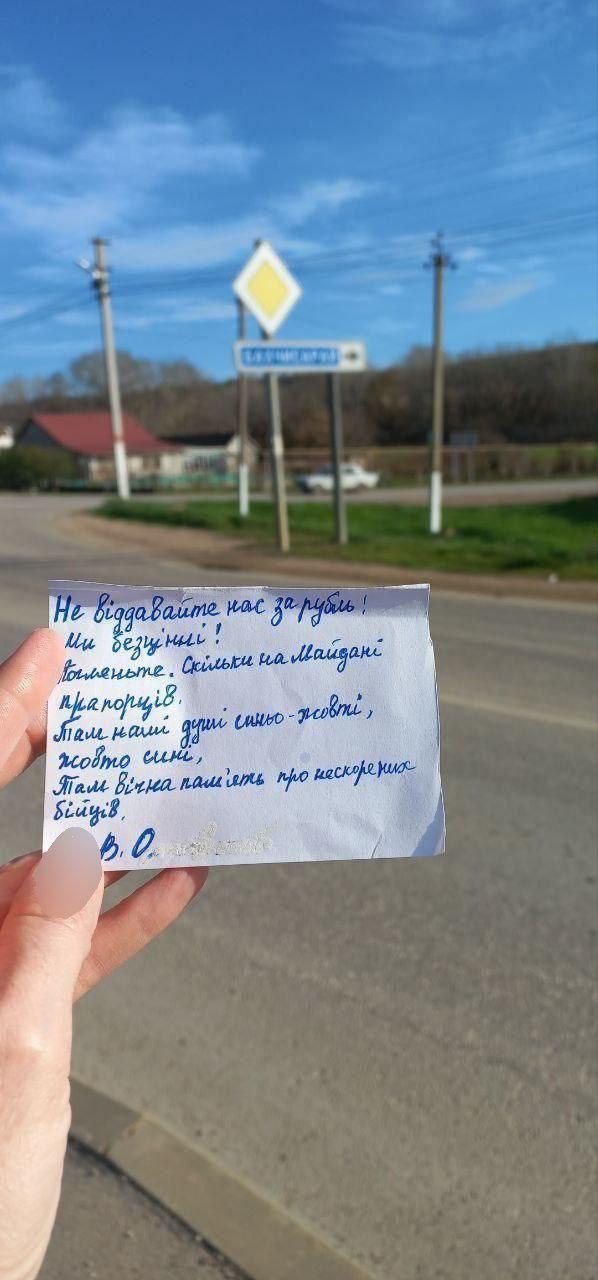 БАХЧИСАРАЙ
Не віддавайте нас за рубль!
Ми безцінні!
Скільки на Майдані
прапорців.
Там наші душі синьо-жовті,
жовто сині,
Там вічна пам'ять про нескорених
бійців.
В. О